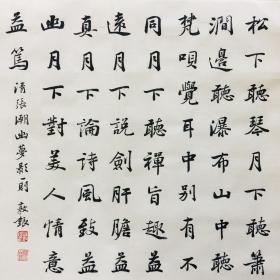 松下聽琴月下聽簫
澗邊聽瀑布山中聽
梵唄覺耳中別有不
同月下聽禪旨趣益
遠月下說劍肝膽益
真月下論詩風致益
幽月下對美人情意
益篤
清張潮幽夢影一則